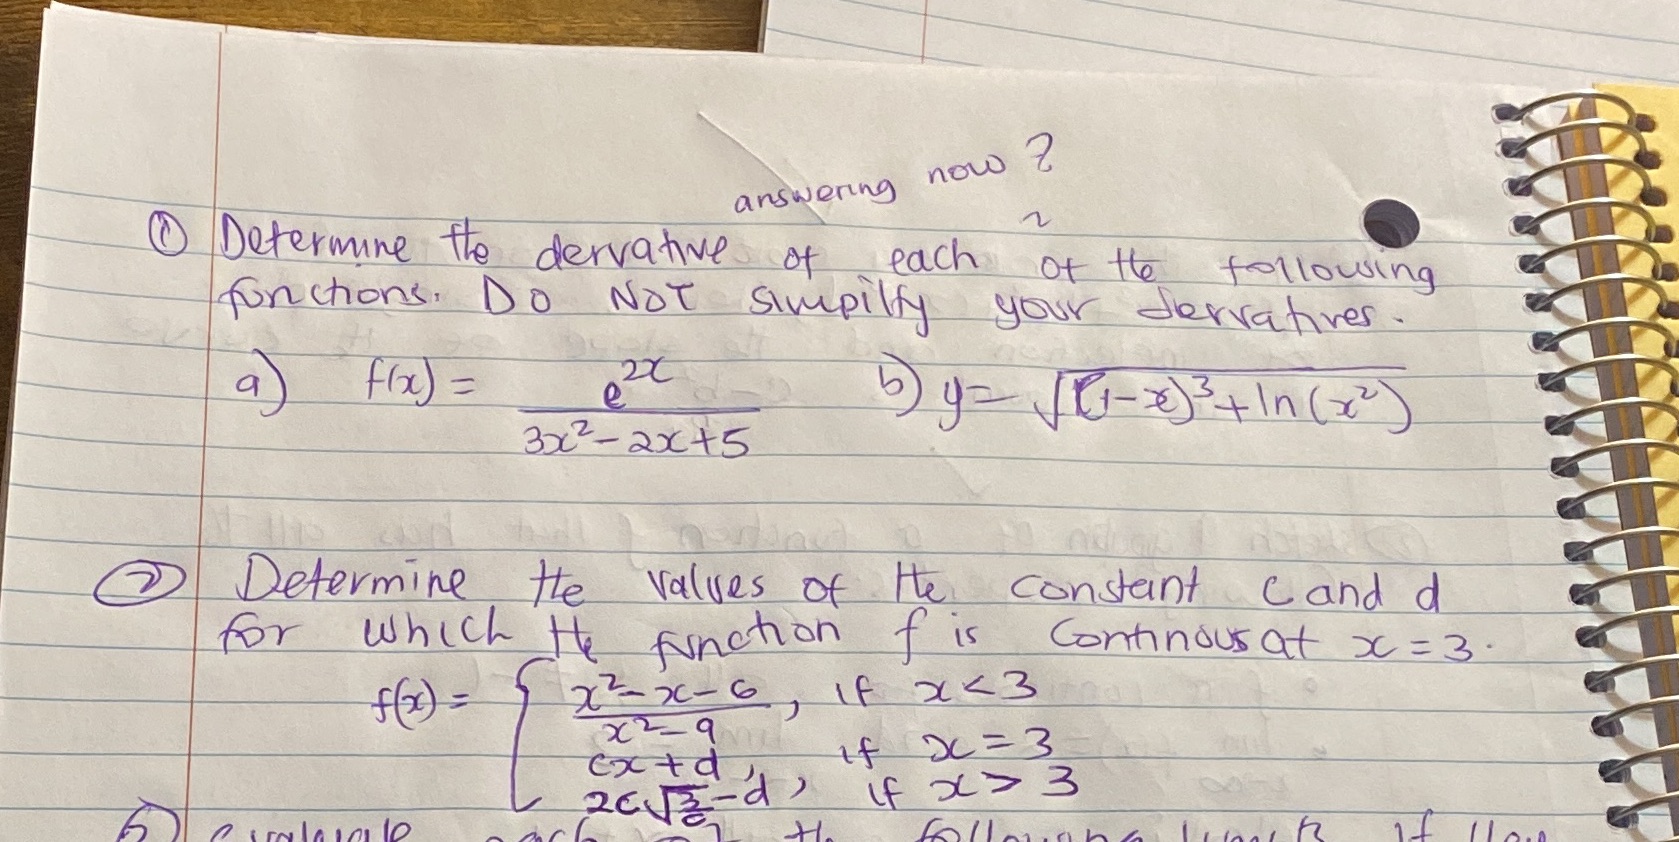 answering now ?
① Determine the dervative of each of the following
functions. DO NOT simpilfy your dervatives.
a) f(x) = e^2x / 3x²-2x+5 b) y = √(1-x)³+ln(x²)
② Determine the values of the constant c and d
for which the function f is continous at x = 3.
f(x) = { x²-x-6 / x²-9 , if x < 3
cx + d , if x = 3
2c√ -d , if x > 3
5) evaluate each of the following limits if